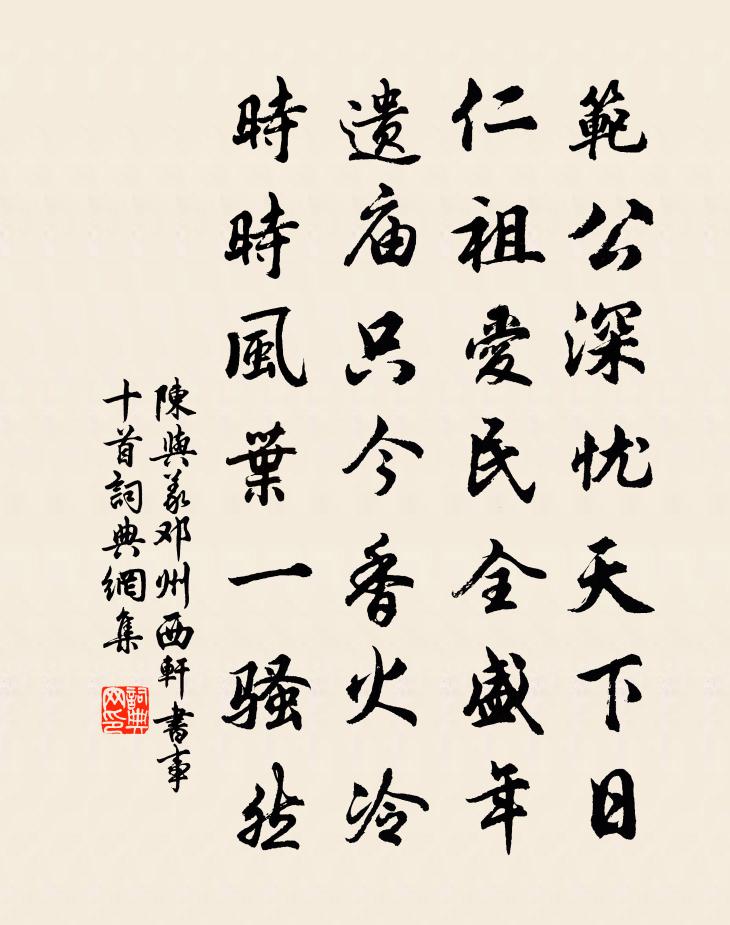 範公深忧天下日
仁祖愛民全盛年
遗庙只今香火冷
時時風葉一骚然
陳與義邓州西軒書事
十首詞典網集
詞典網印